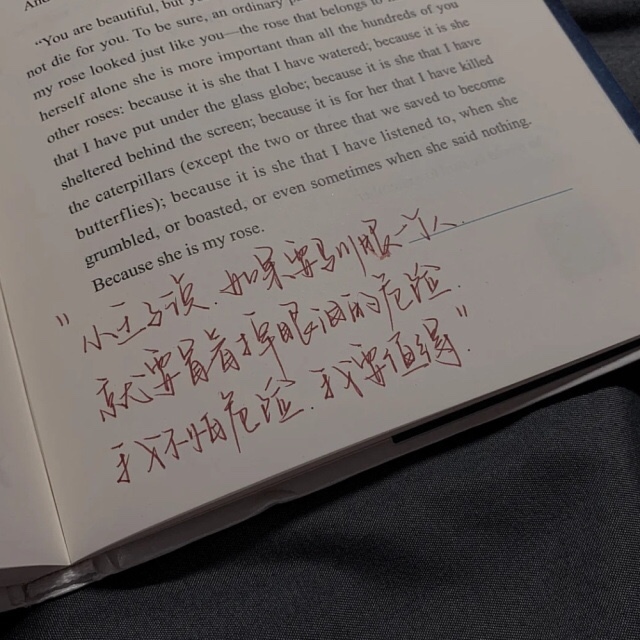 “You are beautiful, but
not die for you. To be sure, an ordinary
my rose looked just like you—the rose that belongs to
herself alone she is more important than all the hundreds of you
other roses: because it is she that I have watered; because it is she
that I have put under the glass globe; because it is she that I have
sheltered behind the screen; because it is for her that I have killed
the caterpillars (except the two or three that we saved to become
butterflies); because it is she that I have listened to, when she
grumbled, or boasted, or even sometimes when she said nothing.
Because she is my rose.
"小王子说.如果要驯服一个人.
就要冒着掉眼泪的危险.
我不怕危险.我要值得."